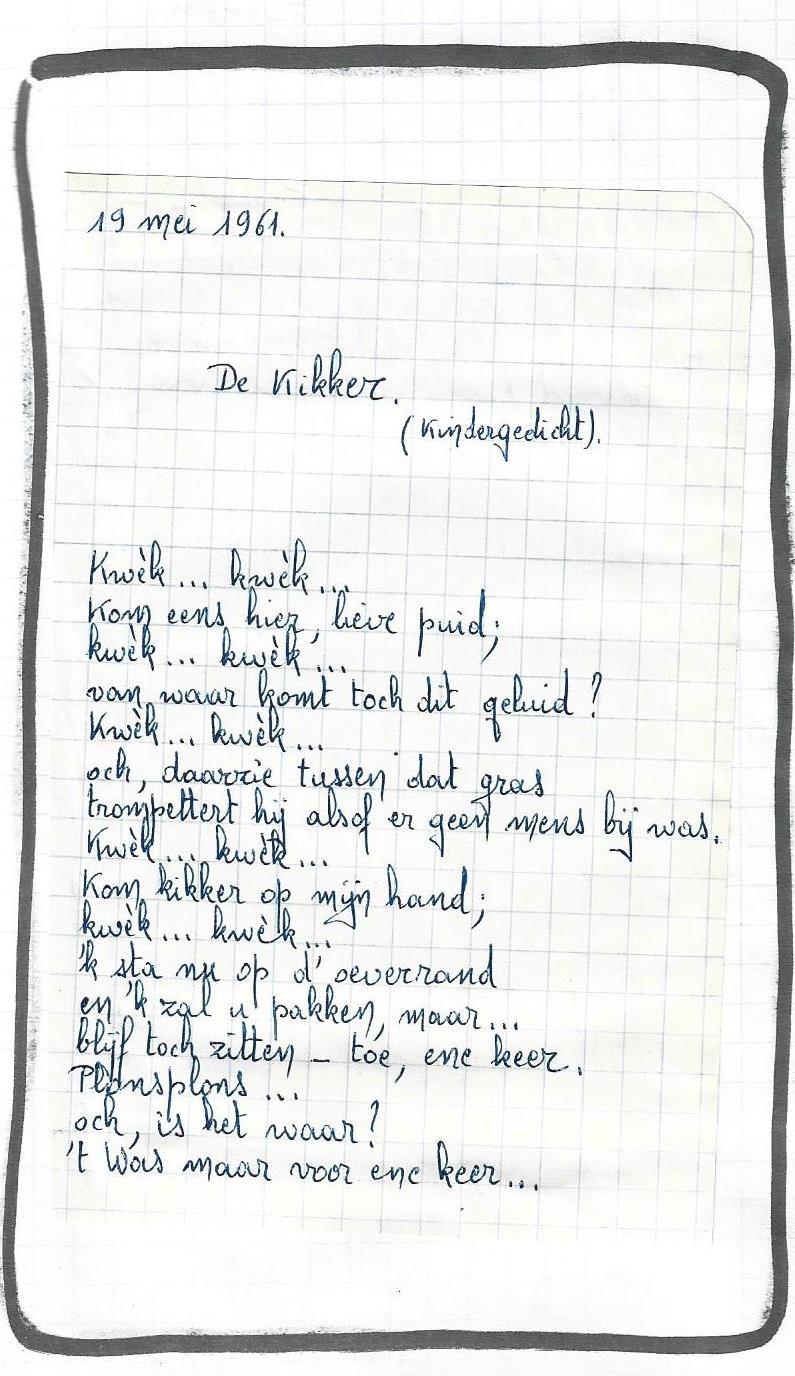 19 mei 1961.
De Kikker.
(Kindergedicht).
Kwèk... kwèk...
Kom eens hier, lieve puid;
kwèk... kwèk...
van waar komt toch dit geluid?
Kwèk... kwèk...
och, daarzie tussen dat gras
trompettert hij alsof er geen mens bij was.
Kwèk... kwèk...
Kom kikker op mijn hand;
kwèk... kwèk...
'k sta nu op d'oeverrand
en 'k zal u pakken, maar...
blijf toch zitten - toe, ene keer.
Plonsplons...
och, is het waar?
't Was maar voor ene keer...